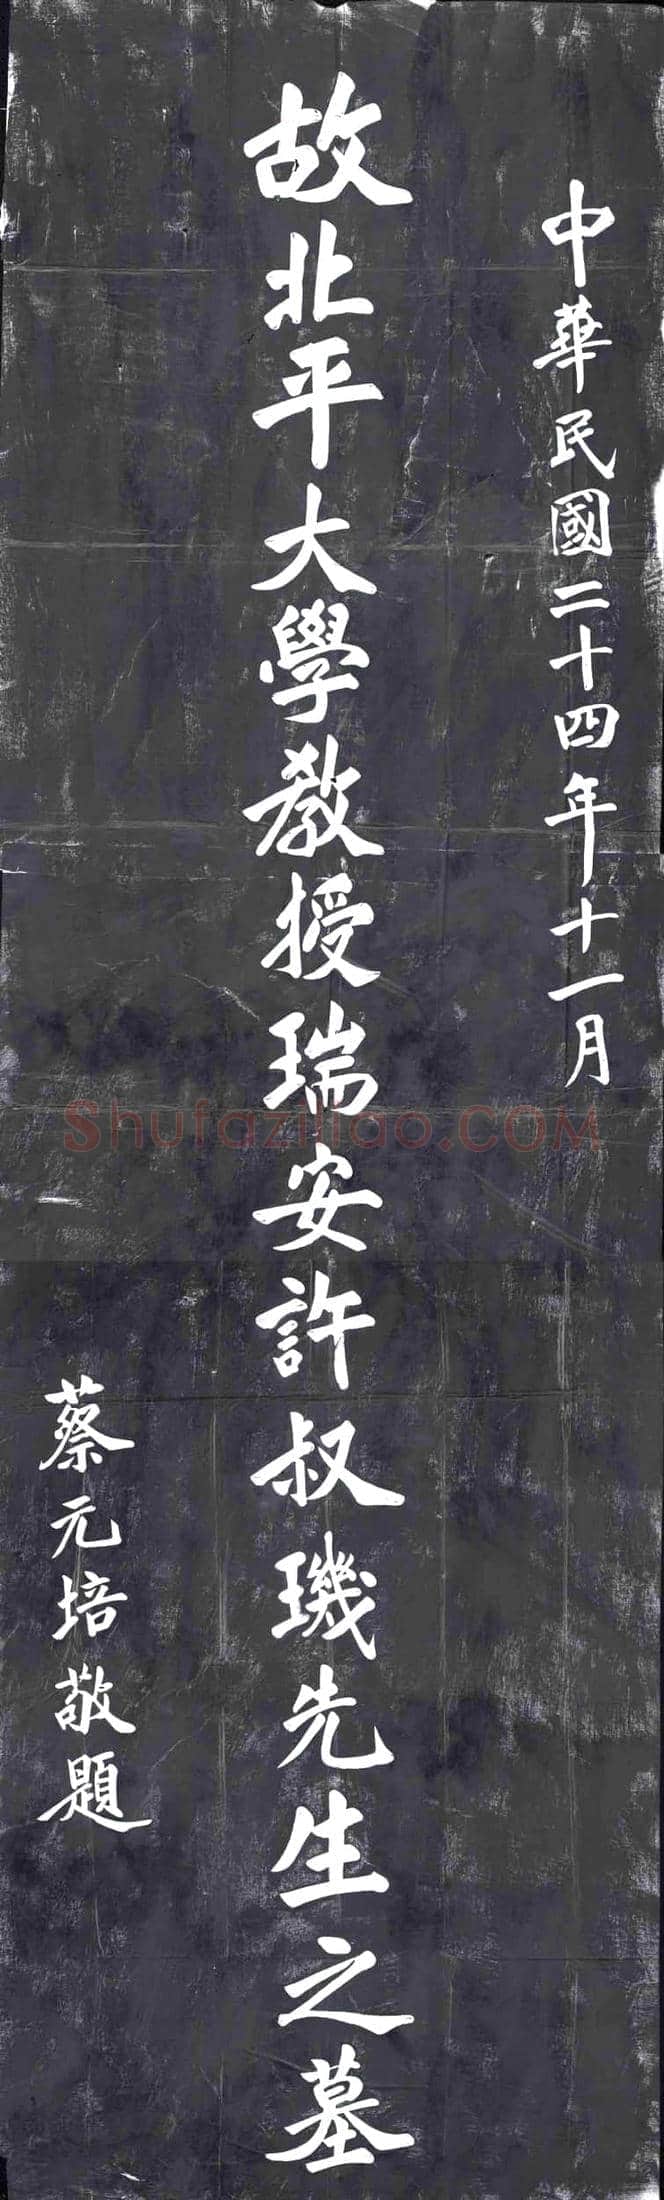 中華民國二十四年十一月
故北平大學教授瑞安許叔璣先生之墓
蔡元培敬題
Shufaziliao.COM